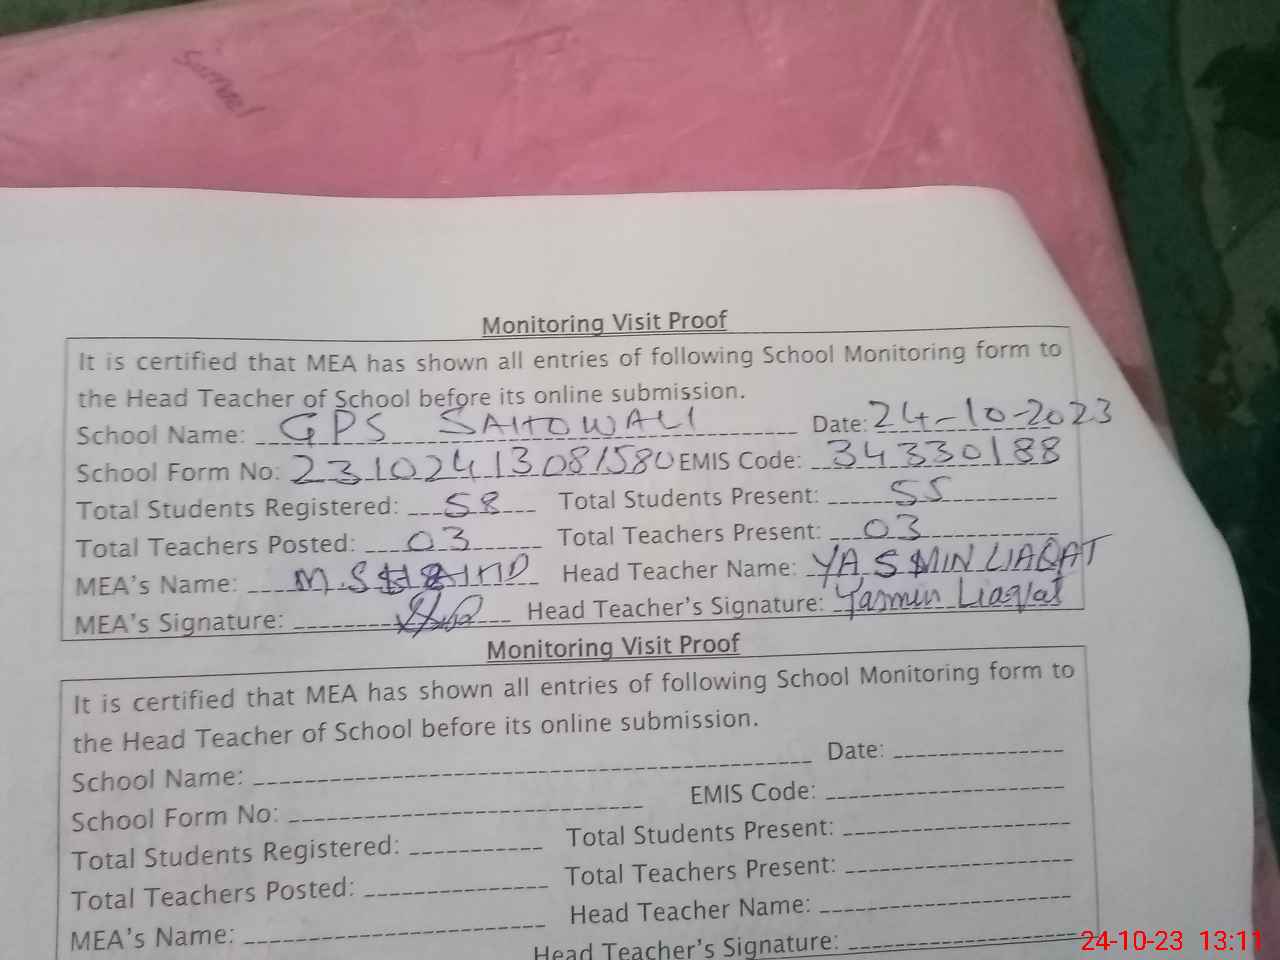 Monitoring Visit Proof
It is certified that MEA has shown all entries of following School Monitoring form to
the Head Teacher of School before its online submission.
School Name: GPS SAHOWALI Date: 24-10-2023
School Form No: 23102413081580 EMIS Code: 34330188
Total Students Registered: 58 Total Students Present: 55
Total Teachers Posted: 03 Total Teachers Present: 03
MEA's Name: M. Head Teacher Name: YASMIN LIAQAT
MEA's Signature: Head Teacher's Signature: Yasmin Liaqat
Monitoring Visit Proof
It is certified that MEA has shown all entries of following School Monitoring form to
the Head Teacher of School before its online submission.
School Name: Date:
School Form No: EMIS Code:
Total Students Registered: Total Students Present:
Total Teachers Posted: Total Teachers Present:
MEA's Name: Head Teacher Name:
Head Teacher's Signature:
24-10-23 13:11